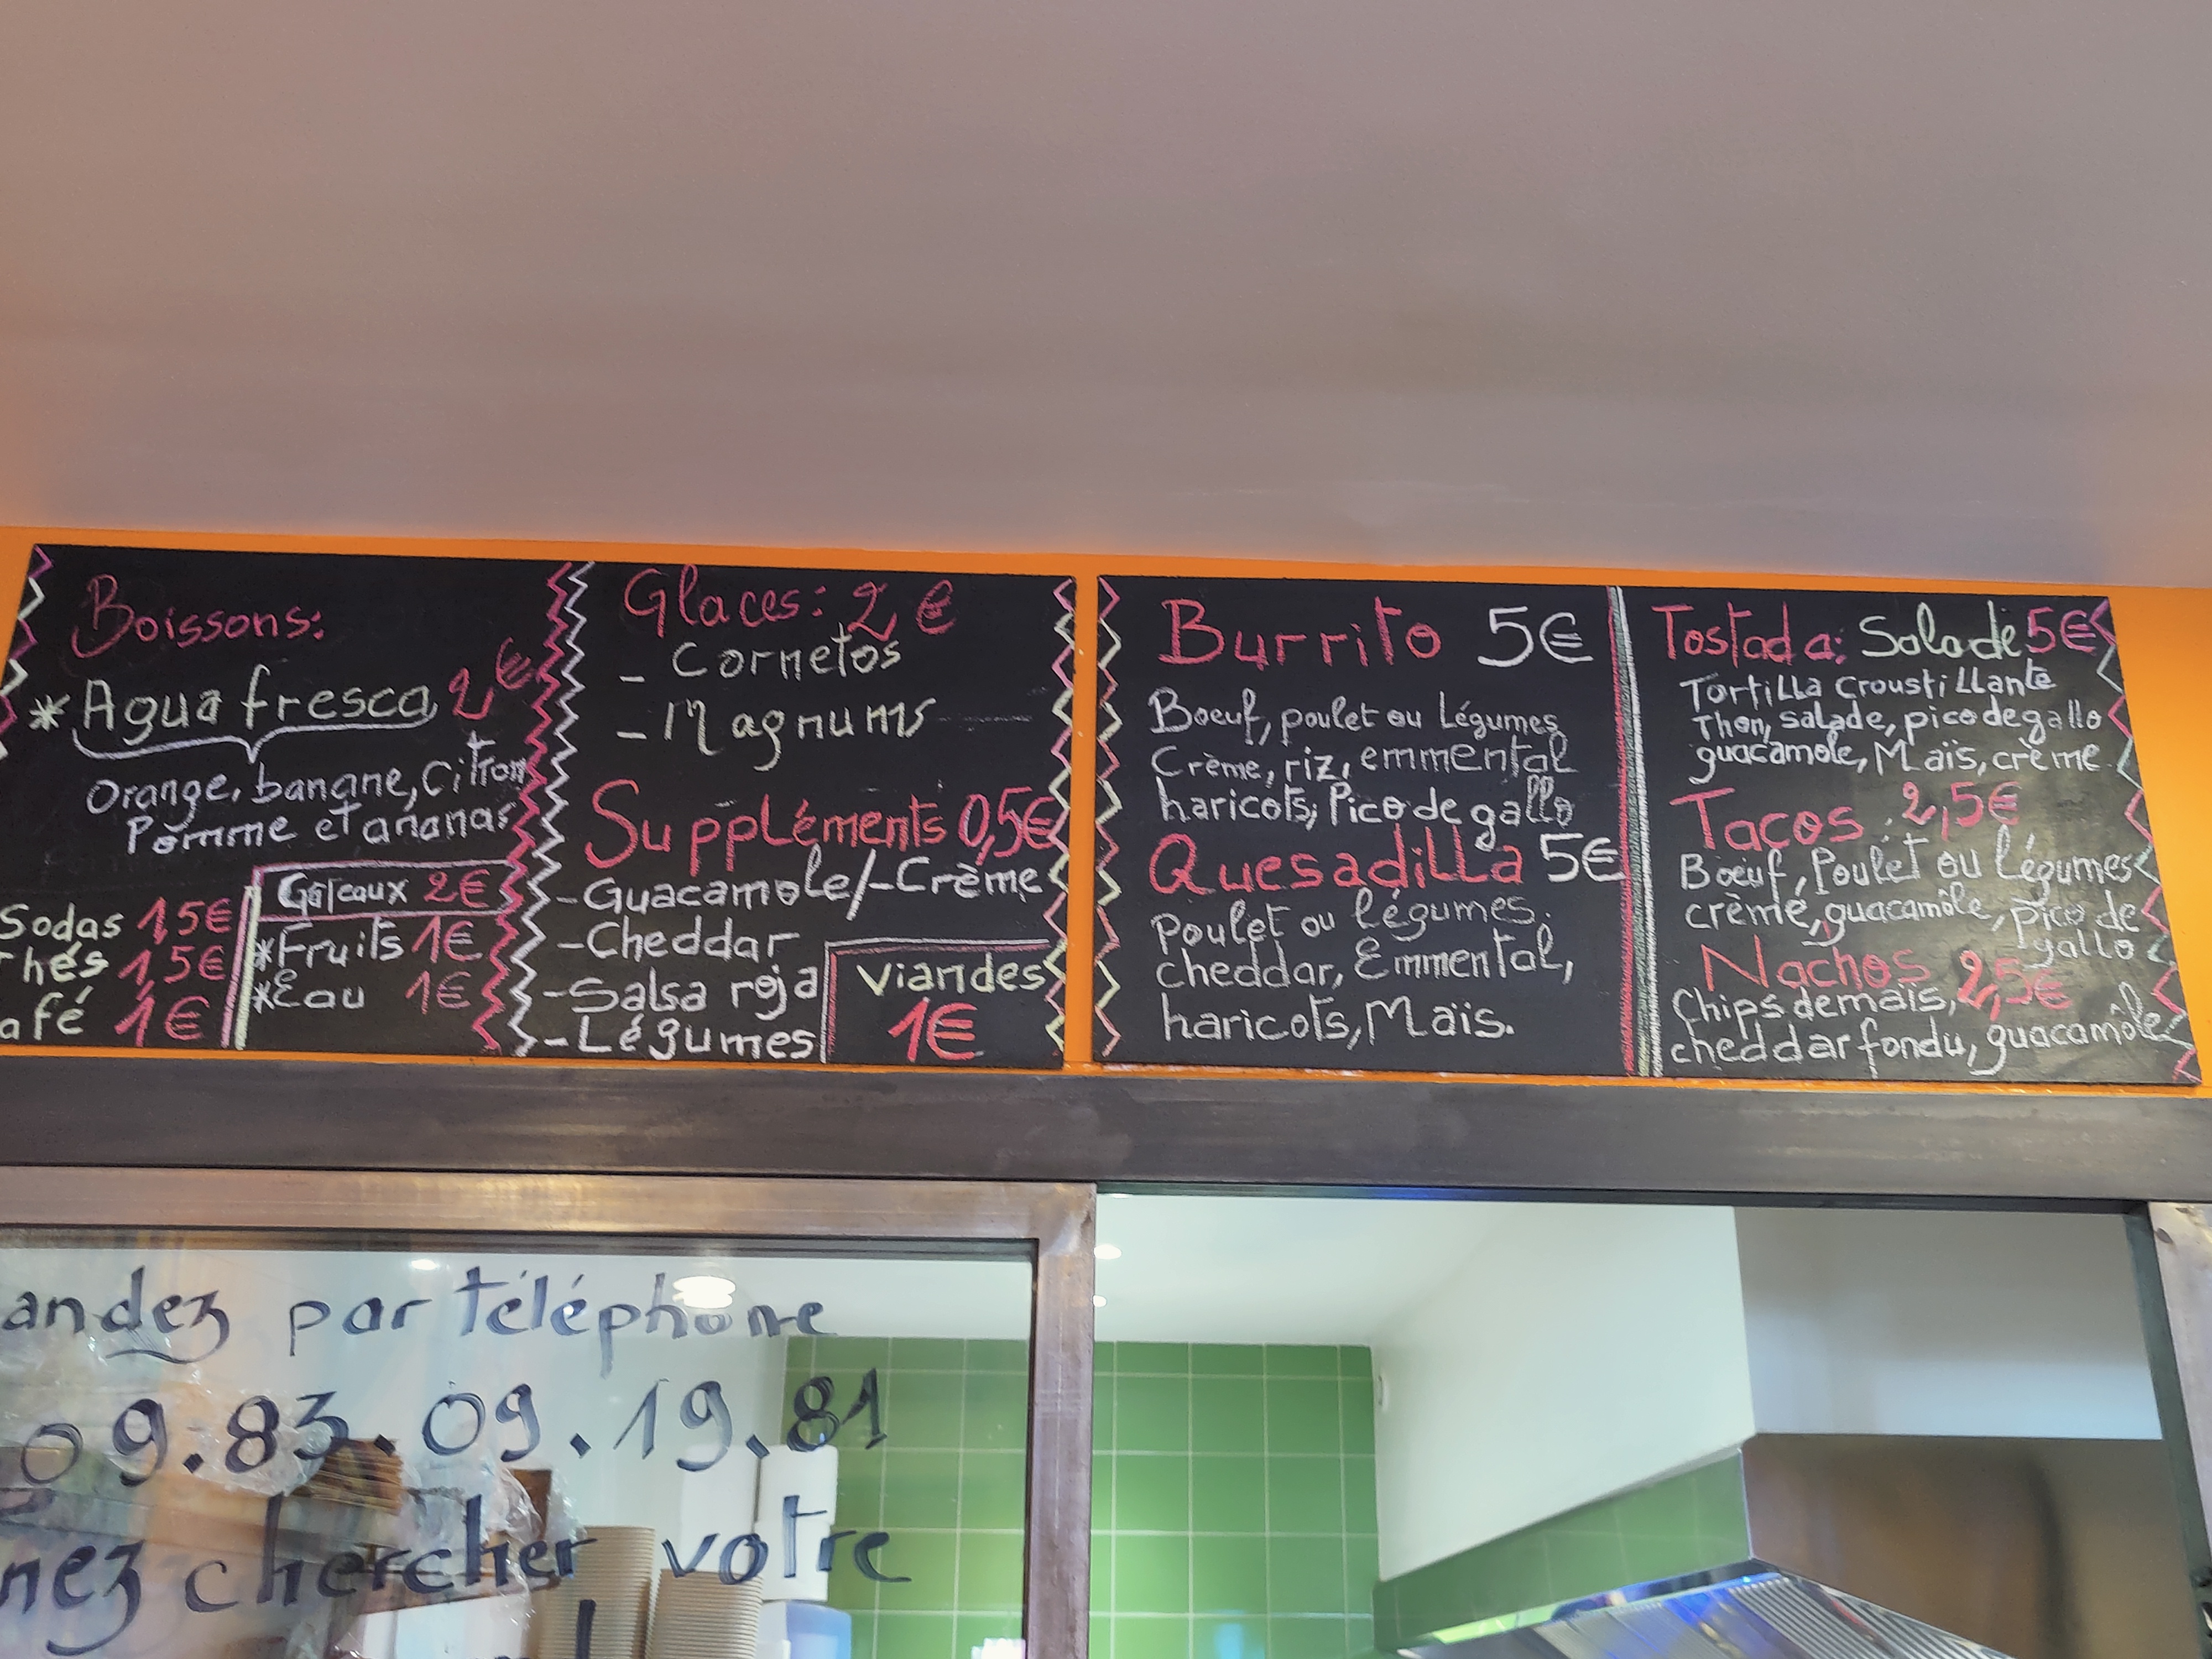 Boissons:
* Agua fresca 2€
Orange, banane, Citron
Pomme et ananas
Sodas 1,5€
hés 1,5€
afé 1€
Gâteaux 2€
*Fruits 1€
*Eau 1€
Glaces: 2€
- Cornetos
- Magnums
Suppléments 0,5€
- Guacamole/-Crème
- Cheddar
- Salsa roja
- Légumes
Viandes
1€
Burrito 5€
Boeuf, poulet ou Légumes
Crème, riz, emmental
haricots, Pico de gallo
Quesadilla 5€
Poulet ou légumes.
cheddar, Emmental,
haricots, Maïs.
Tostada: Salade 5€
Tortilla croustillante
Thon, salade, pico de gallo
guacamole, Maïs, crème
Tacos 2,5€
Boeuf, Poulet ou légumes
crème, guacamôle, pico de
gallo
Nachos 2,5€
Chips de maïs,
cheddar fondu, guacamôle
andez par téléphone
09.83.09.19.81
nez chercher votre